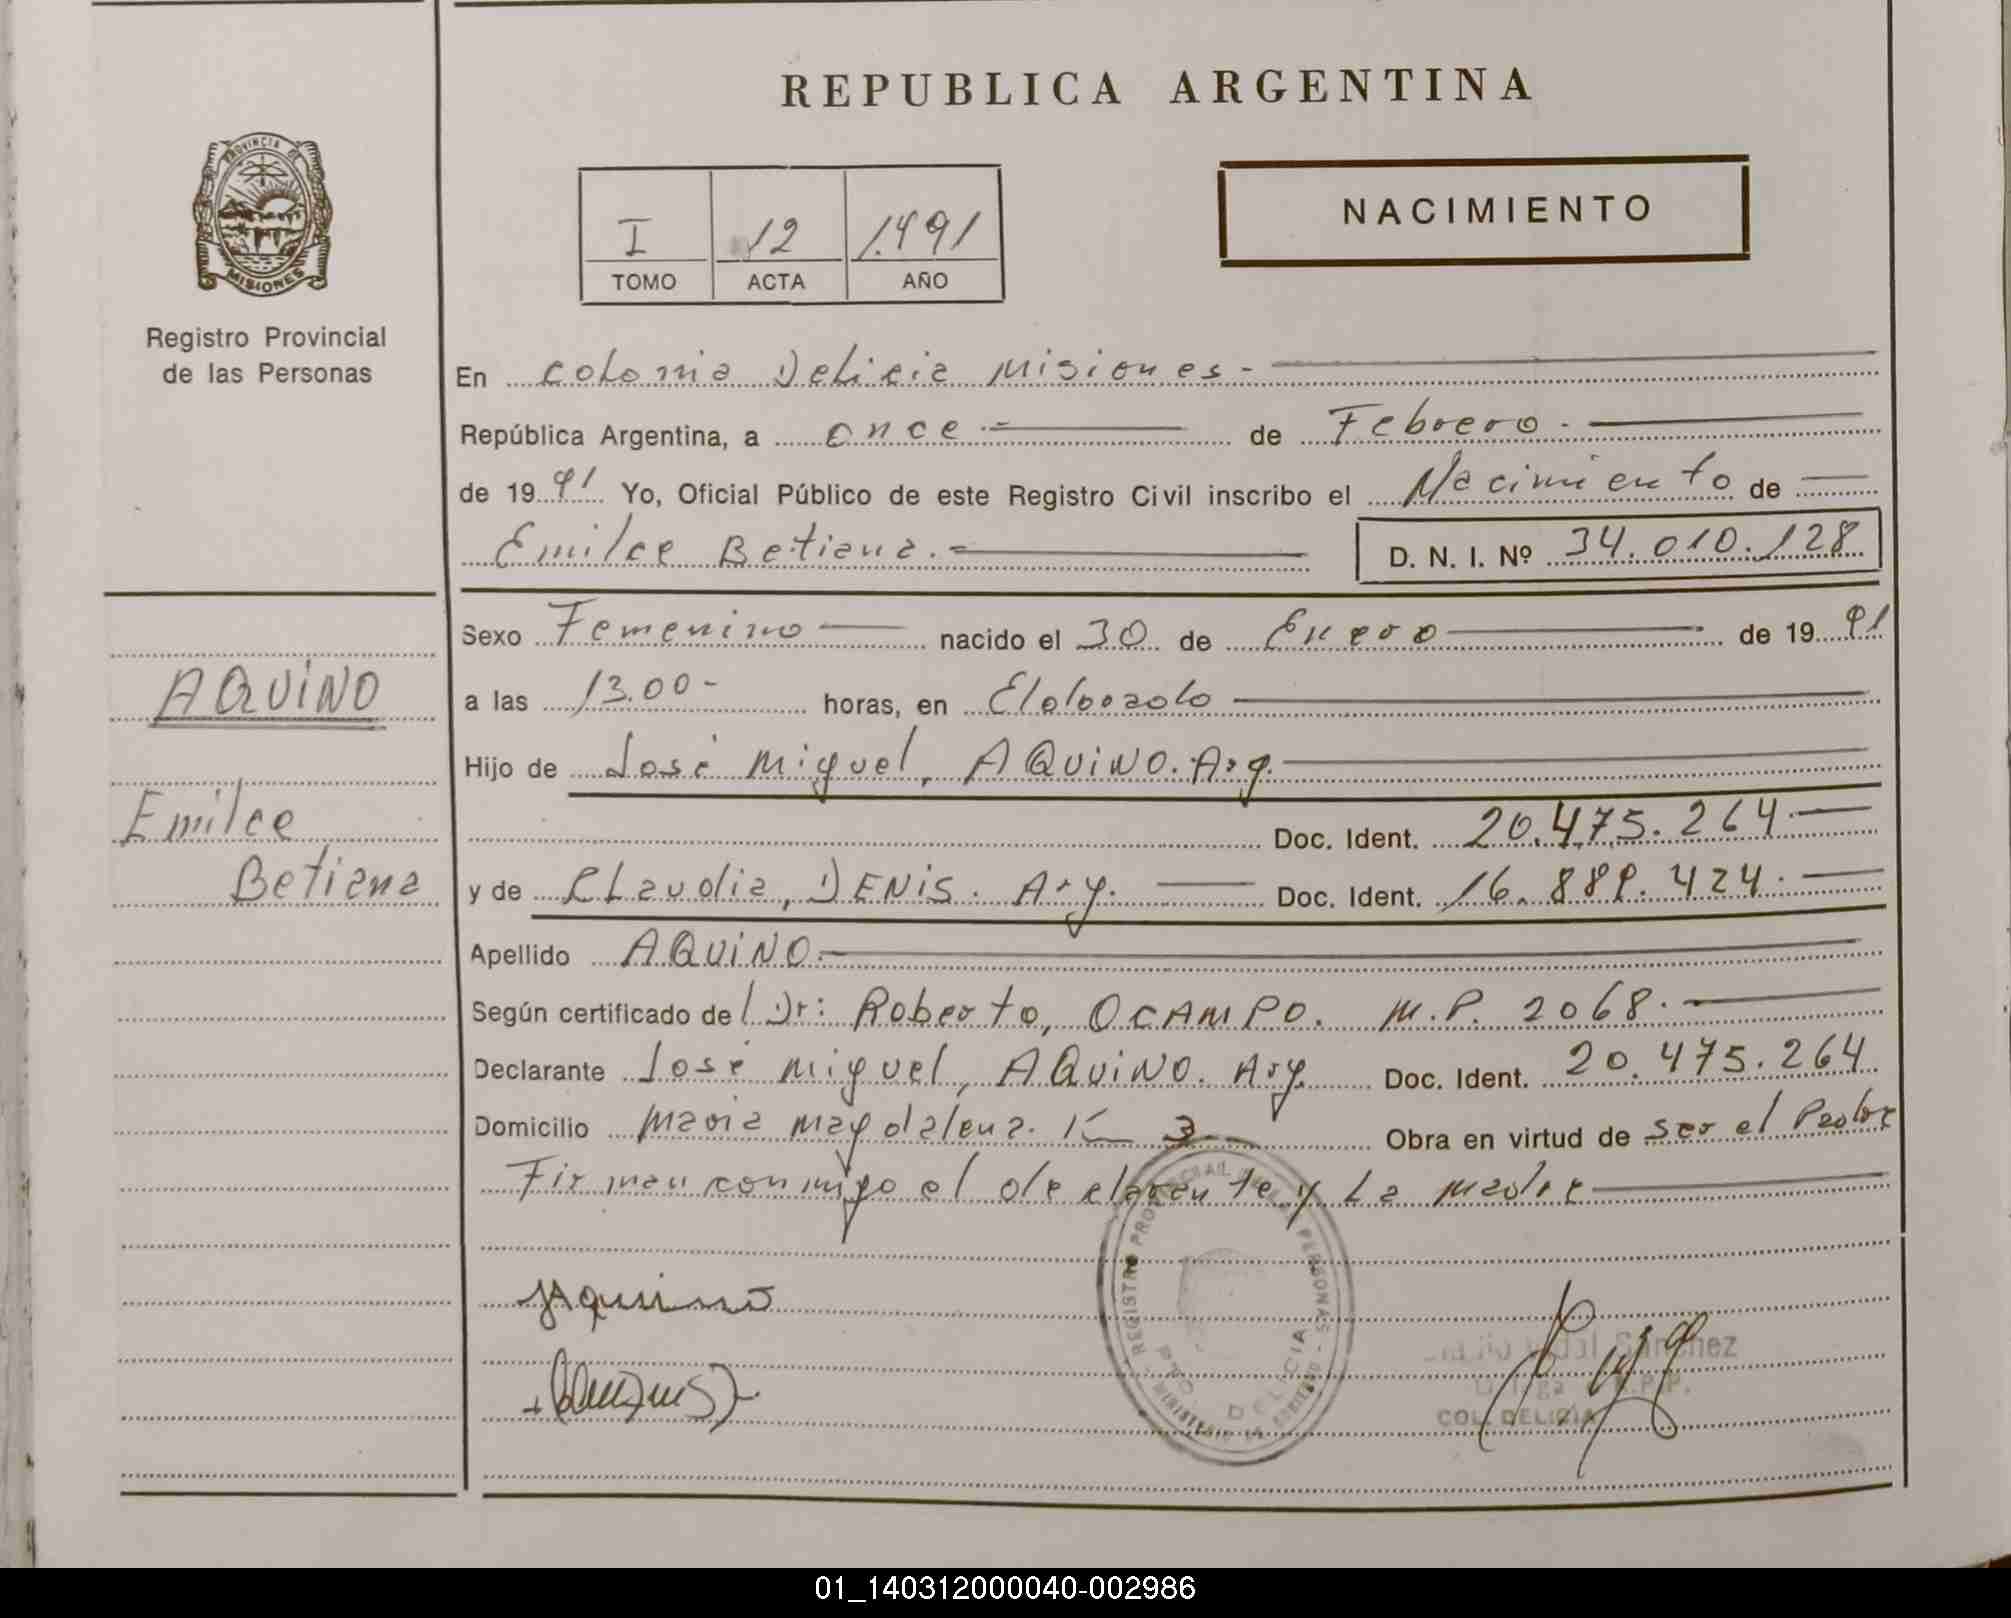 REPUBLICA ARGENTINA
PROVINCIA DE
MISIONES
Registro Provincial
de las Personas
I 12 1.991
TOMO ACTA AÑO
NACIMIENTO
En Colonia Delicia Misiones.-
República Argentina, a once.- de Febrero.-
de 1991 Yo, Oficial Público de este Registro Civil inscribo el Nacimiento de
Emilce Betiana.- D. N. I. Nº 34.010.128
Sexo Femenino nacido el 30 de Enero de 1991
a las 13.00- horas, en Eldorado
Hijo de José Miguel, AQUINO. Arg.
Doc. Ident. 20.475.264.
y de Claudia, DENIS. Arg. Doc. Ident. 16.889.424.
Apellido AQUINO.-
Según certificado del Dr: Roberto, OCAMPO. M.P. 2068.
Declarante José Miguel, AQUINO. Arg. Doc. Ident. 20.475.264
Domicilio Maria Magdalena. K 3 Obra en virtud de ser el Padre
Firman conmigo el declarante y La Madre
AQUINO
Emilce
Betiana
JAquino
REGISTRO PROVINCIAL DE LAS PERSONAS
PTO DELICIA
MINISTERIO DE GOBIERNO
Sánchez
R.P.P.
COL. DELICIA
01_140312000040-002986